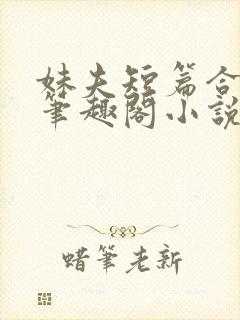 妹夫短篇合
筆趣閣小說
蜡筆老新